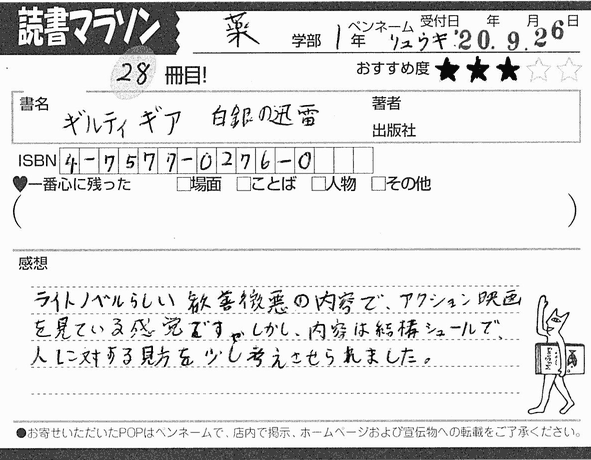 読書マラソン
薬 学部 1年 ペンネーム リュウギ 受付日 年 月 日 '20.9.26
28冊目!
おすすめ度 ★★★☆☆
書名 ギルティギア 白銀の迅雷
著者
出版社
ISBN 4-7577-0276-0
♥一番心に残った □場面 □ことば □人物 □その他
( )
感想
ライトノベルらしい 歓善徴悪の内容で、アクション映画
を見ている感覚です。しかし、内容は結構シュールで、
人に対する見方を少し考えさせられました。
●お寄せいただいたPOPはペンネームで、店内で掲示、ホームページおよび宣伝物への転載をご了承ください。